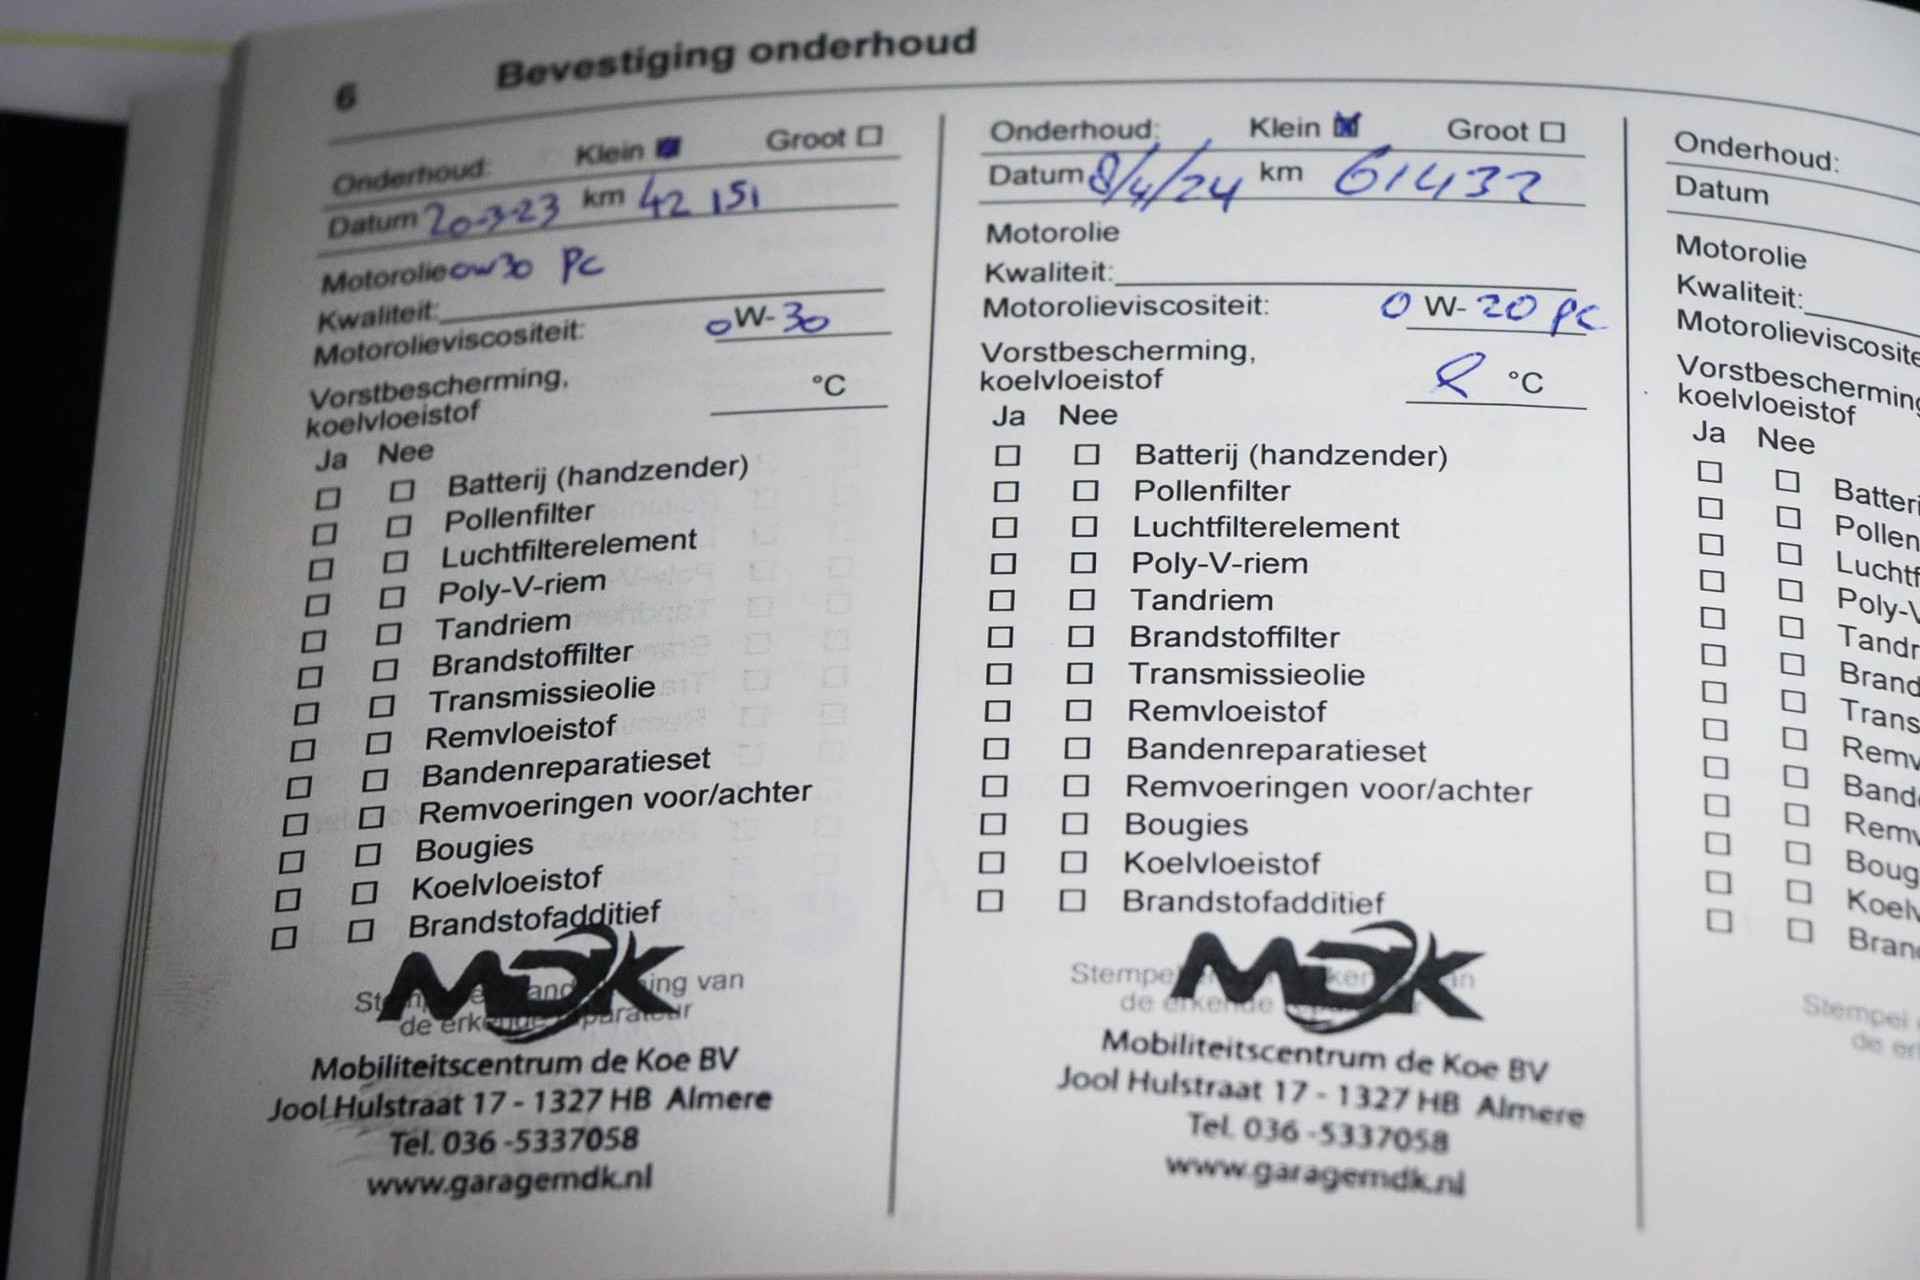 6 Bevestiging onderhoud
Onderhoud: Klein Groot
Datum 20-3-23 km 42 151
Motorolie 0w30 PC
Kwaliteit:
Motorolieviscositeit: 0 W- 30
Vorstbescherming,
koelvloeistof °C
Ja Nee
Batterij (handzender)
Pollenfilter
Luchtfilterelement
Poly-V-riem
Tandriem
Brandstoffilter
Transmissieolie
Remvloeistof
Bandenreparatieset
Remvoeringen voor/achter
Bougies
Koelvloeistof
Brandstofadditief
MDK
van
de
Mobiliteitscentrum de Koe BV
Jool Hulstraat 17 - 1327 HB Almere
Tel. 036 -5337058
www.garagemdk.nl
Onderhoud: Klein Groot
Datum 8/4/24 km 61432
Motorolie
Kwaliteit:
Motorolieviscositeit: 0 W- 20 PC
Vorstbescherming,
koelvloeistof °C
Ja Nee
Batterij (handzender)
Pollenfilter
Luchtfilterelement
Poly-V-riem
Tandriem
Brandstoffilter
Transmissieolie
Remvloeistof
Bandenreparatieset
Remvoeringen voor/achter
Bougies
Koelvloeistof
Brandstofadditief
MDK
de erkende
Mobiliteitscentrum de Koe BV
Jool Hulstraat 17 - 1327 HB Almere
Tel. 036 -5337058
www.garagemdk.nl
Onderhoud:
Datum
Motorolie
Kwaliteit:
Motorolieviscosite
Vorstbescherming
koelvloeistof
Ja Nee
Batteri
Pollen
Luchtf
Poly-V
Tandr
Brand
Trans
Remv
Bande
Remv
Boug
Koelv
Bran
Stempel
de er